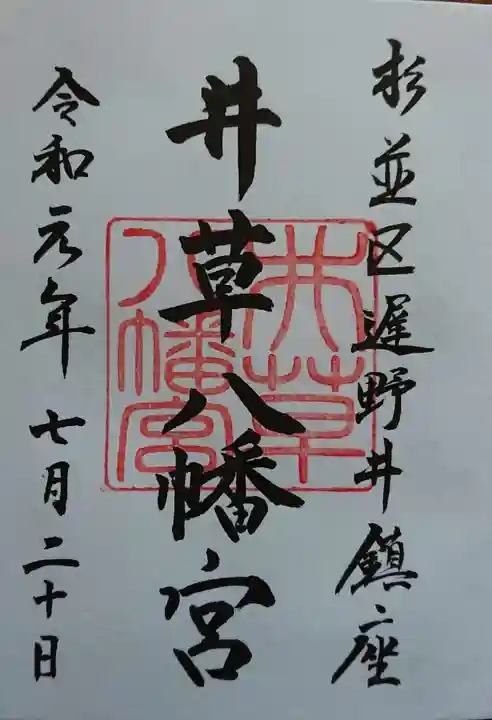 杉並区遅野井鎮座
井草八幡宮
井草
八幡宮
令和元年七月二十日